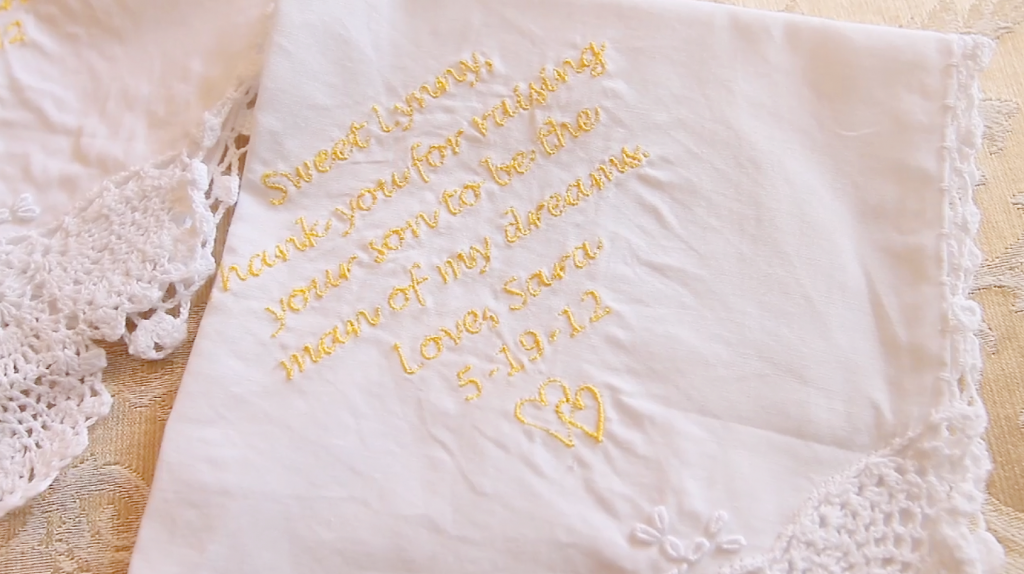 Sweet Lynny,
hank you for raising
your son to be the
man of my dreams.
Love, Sara
5-19-12